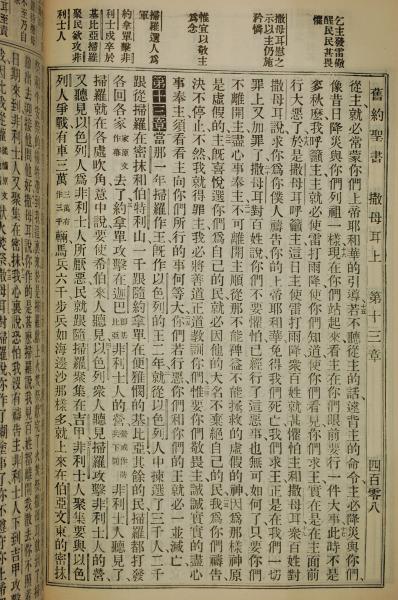 舊約聖書 撒母耳上 第十三章 四百零八
乞主發雷敬
醒民民甚畏
懼
撒母耳慰之
示以主仍施
矜憐
惟宜以敬主
為念
掃羅選人爲
軍
約拿單擊非
利士戍卒於
基比亞掃羅
聚民欲攻非
利士人
從主就必常蒙你們上帝耶和華的引導若不聽從主的話違背主的命令主必降災與你們、
像昔日降災與你們列祖一樣現在你們站起來看主在你們眼前要行一件大事此時不是
麥秋麽我呼籲主主就必使雷打雨降使你們知道使你們看見你們求王實在是在主面前
行大惡了於是撒母耳呼籲主這日主使雷打雨降衆百姓就甚懼怕主和撒母耳衆百姓對
撒母耳說求你爲你僕人禱告你的上帝耶和華免得我們死亡我們求王正是在我們一切
罪上又加罪了撒母耳對百姓說你們不要懼怕已經行了這惡事也無可如何了只要你們
不離開主盡心事奉主不可離開主順從那不能裨益不能拯救的虛假的神因爲那樣神原
是虛假的主既喜悅選你們爲自己的民就必因他的大名不棄絕自己的民我爲你們禱告
決不停止不然我就得罪主我必將善道正道教訓你們惟要你們敬畏主誠誠實實的盡心
事奉主須看看主向你們所行的事何等大你們若行惡你們和你們的王就必一並滅亡、
第十三章當那一年掃羅作王既作以色列的王二年就從以色列人中揀選了三千人二千
跟從掃羅在密抹和伯特利山一千跟隨約拿單在便雅憫的基比亞其餘的民掃羅都打發
各回各家去了約拿單攻擊在迦巴非利士人的營非利士人聽見了
掃羅就在各處吹角意中說要使希伯來人聽見以色列衆人聽見掃羅攻擊非利士人的營、
又聽見以色列人爲非利士人所厭惡民就跟隨掃羅聚集在吉甲非利士人聚集要與以色
列人爭戰有車三萬輛馬兵六千步兵如海邊沙那樣多就上來在伯亞文東的密抹